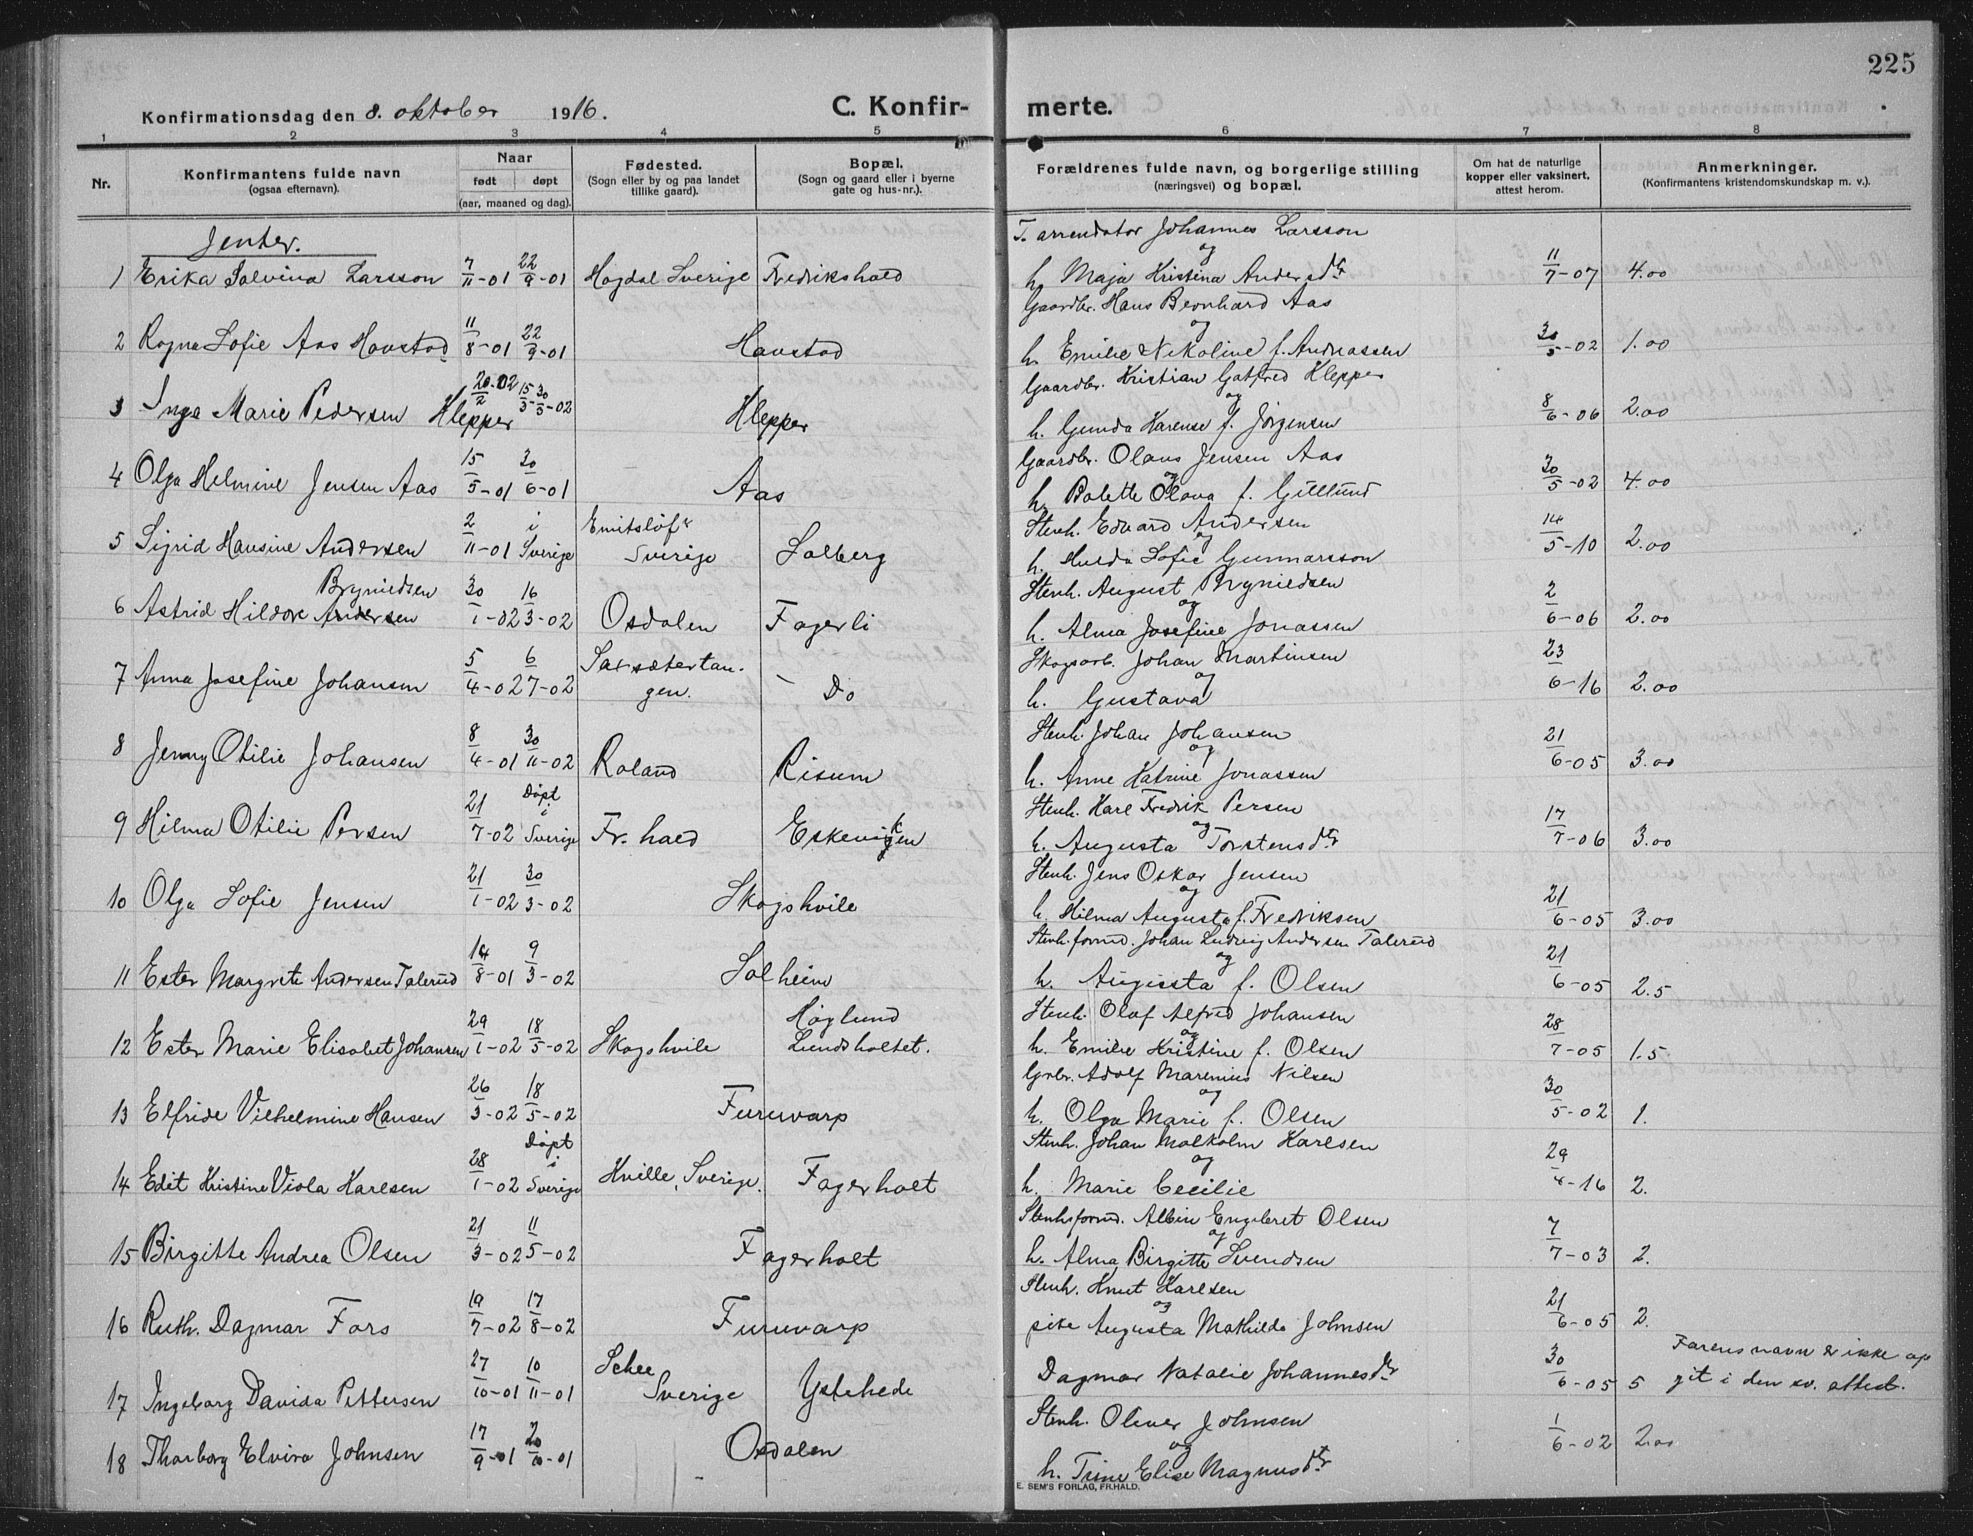 225
Konfirmationsdag den 8. oktober 1916.
C. Konfirmerte.
1 2 3 4 5 6 7 8
Nr.
Konfirmantens fulde navn (ogsaa efternavn).
Naar født døpt (aar, maaned og dag).
Fødested. (Sogn eller by og paa landet tillike gaard).
Bopæl. (Sogn og gaard eller i byerne gate og hus-nr.).
Forældrenes fulde navn, og borgerlige stilling (næringsvei) og bopæl.
Om hat de naturlige kopper eller vaksinert, attest herom.
Anmerkninger. (Konfirmantens kristendomskundskap m. v.).
Jenter.
1 Erika Salvina Larsson 7/11-01 22/9-01 Hogdal Sverige Fredrikshald T. arrendator Johannes Larsson og h. Maja Kristina Andersdtr 11/7-07 4.00
2 Ragna Sofie Aas Havstad 11/8-01 22/9-01 Havstad Gaardbr. Hans Bernhard Aas og h. Emilie Nikoline f. Andreassen 30/5-02 1.00
3 Inga Marie Pedersen Klepper 20/2-02 15/3-30/3-02 Klepper Gaardbr. Kristian Gotfred Klepper og h. Gunda Karense f. Jørgensen 8/6-06 2.00
4 Olga Helmine Jensen Aas 15/5-01 30/6-01 Aas Gaardbr. Olaus Jensen Aas og h. Bolette Olava f. Gillund 30/5-02 4.00
5 Sigrid Hansine Andersen 2/11-01 i Sverige Emitsløf Sverige Solberg Stenh. Edvard Andersen og h. Hulda Sofie Gunnarsson 14/5-10 2.00
6 Astrid Hildore Andersen Brynildsen 30/1-02 16/3-02 Osdalen Fagerli Stenh. August Brynildsen og h. Alma Josefine Jonassen 2/6-06 2.00
7 Anna Josefine Johansen 5/4-02 6/7-02 Sarsætertangen. - Do Skogsarb. Johan Martinsen og h. Gustava 23/6-16 2.00
8 Jenny Otilie Johansen 8/4-01 30/11-02 Roland Risum Stenh. Johan Johansen og h. Anne Katrine Jonassen 21/6-05 3.00
9 Hilma Otilie Persen 21/7-02 Døpt i Sverige Fr. hald Eskeviken Stenh. Karl Fredrik Persen og h. Augusta Torstensdtr 17/7-06 3.00
10 Olga Sofie Jensen 21/1-02 30/3-02 Skogshvile Stenh. Jens Oskar Jensen og h. Hilma Augusta f. Fredriksen 21/6-05 3.00
11 Ester Margrete Andersen Talerud 14/8-01 9/3-02 Solheim Stenh.formd. Johan Ludvig Andersen Talerud og h. Augusta f. Olsen 21/6-05 2.5
12 Ester Marie Elisabet Johansen 29/1-02 18/5-02 Skogshvile Høglund Lundsholtet. Stenh. Olaf Alfred Johansen og h. Emilie Kristine f. Olsen 28/7-05 1.5
13 Elfride Vilhelmine Hansen 26/3-02 18/5-02 Furuvarp Grbr. Adolf Marenius Nilsen og h. Olga Marie f. Olsen 30/5-02 1.
14 Edit Kristine Viola Karlsen 28/1-02 Døpt i Sverige Hville, Sverige. Fagerholt Stenh. Johan Malkolm Karlsen og h. Marie Cecilie 29/4-16 2.
15 Birgitte Andrea Olsen 21/3-02 11/5-02 Fagerholt Stenhsformd. Albin Engebret Olsen og h. Alma Birgitte Svendsen 7/7-03 2.
16 Ruth. Dagmar Fors 19/7-02 17/8-02 Furuvarp Stenh. Knut Karlsen og pike Augusta Mathilde Johnsen 21/6-05 2.
17 Ingeborg Davida Pettersen 27/10-01 10/11-01 Schee Sverige Ystehede Dagmar Natalie Johannesdtr 30/6-05 5 Farens navn er ikke opgit i den sv. attest.
18 Tharborg Elvira Johnsen 17/9-01 20/10-01 - Osdalen Stenh. Oliver Johnsen og h. Trine Elise Magnusdtr 1/6-02 2.00
E. SEM'S FORLAG, FR.HALD.